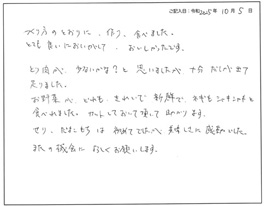 ご記入日:令和2025年10月5日
作り方のとおりに、作り、食べました。
とても良いにおいがして、おいしかったです。
とり肉が、少ないかな?と思いましたが十分だしが出て
足りました。
お野菜も、どれも、きれいで新鮮で、ネギもシャキシャキと
食べれました。カットしておいて頂いて助かります。
せり、だまこもちは初めてでしたが美味しさに感動でした。
またの機会によろしくお願いします。